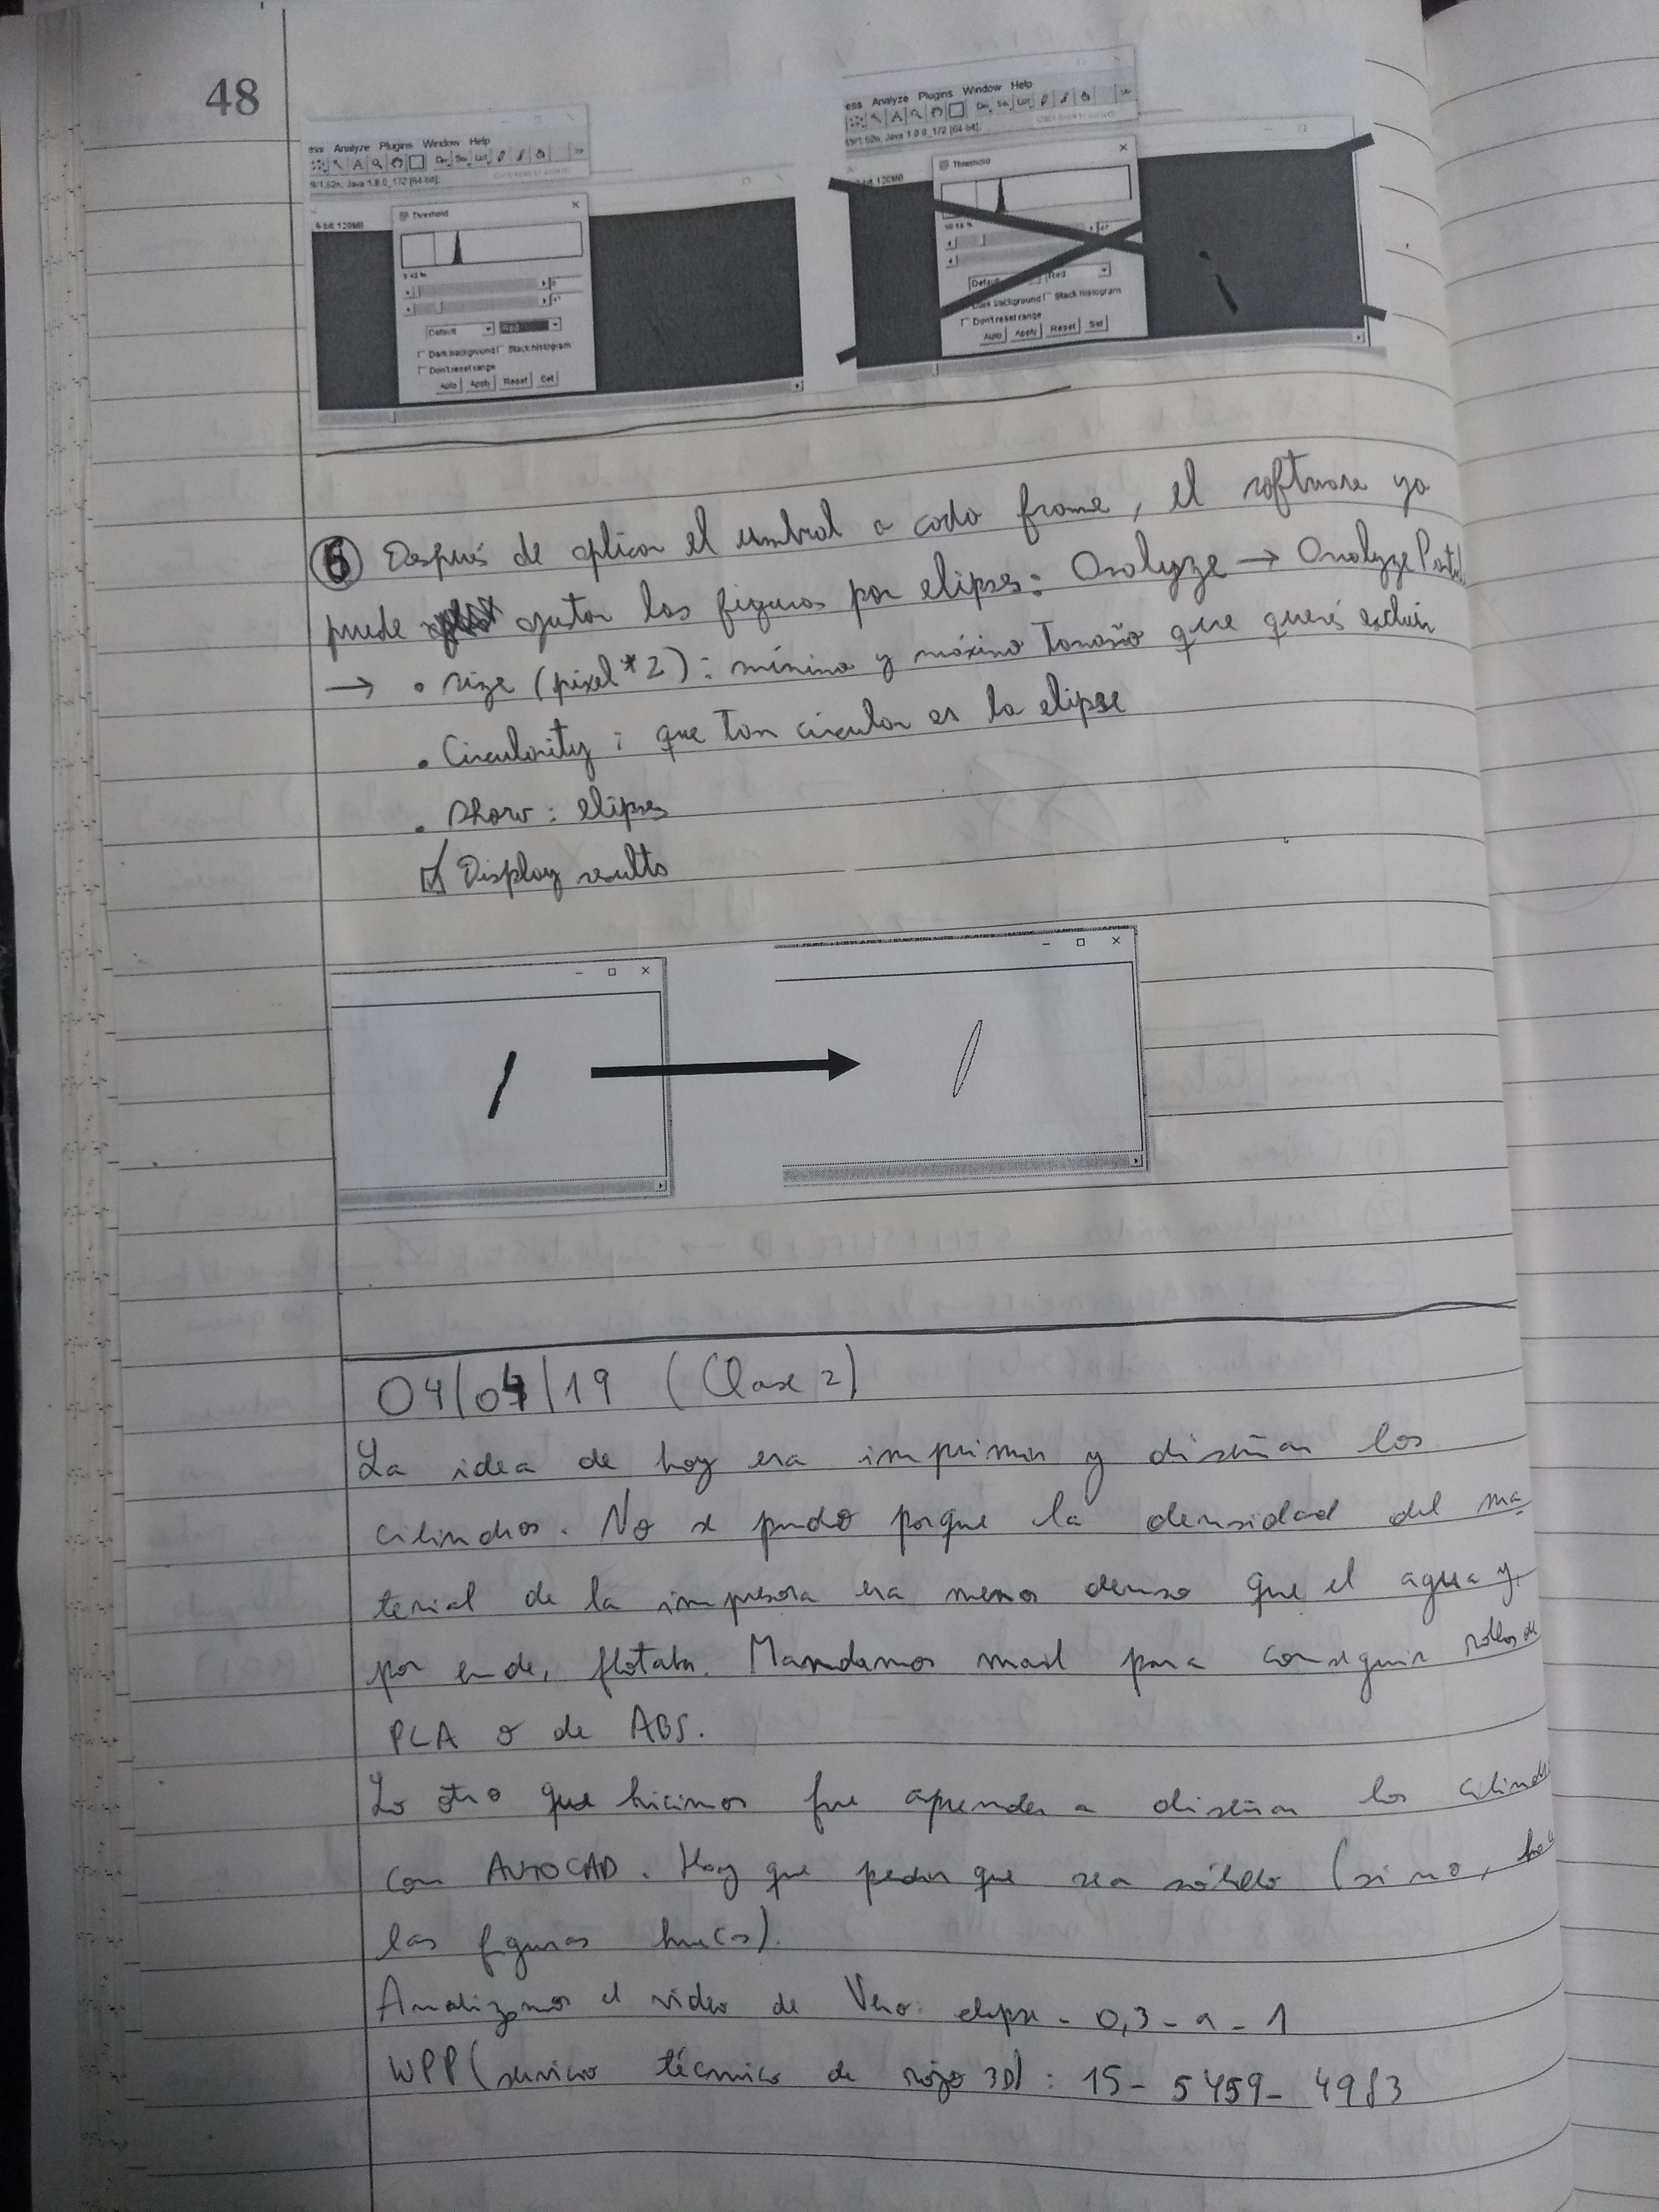 48
ess Analyze Plugins Window Help
9/1.52n; Java 1.8.0_172 [64-bit];
8-bit; 120MB
Threshold
Default Red
Dark background Stack histogram
Don't reset range
Auto Apply Reset Set
ess Analyze Plugins Window Help
Java 1.8.0_172 [64-bit];
120MB
Threshold
Red
Dark background Stack histogram
Don't reset range
Auto Apply Reset Set
6 Después de aplicar el umbral a cada frame, el software ya
puede ajustar las figuras por elipses: Analyze → Analyze
→ • size (pixel*2): mínimo y máximo tamaño que querés excluir
• Circularity: que tan circular es la elipse
• Show: elipses
☑ Display results
04/04/19 (Clase 2)
La idea de hoy era imprimir y diseñar los
cilindros. No se pudo porque la densidad del ma-
terial de la impresora era menos denso que el agua y,
por ende, flotaba. Mandamos mail para conseguir rollos de
PLA o de ABS.
Lo otro que hicimos fue aprender a diseñar los
con AUTOCAD. Hay que pedir que sea sólido (si no,
las figuras huecas).
Analizamos el video de Vero: elipse - 0,3 - a - 1
WPP (servicio técnico de 3D): 15-5459-4983